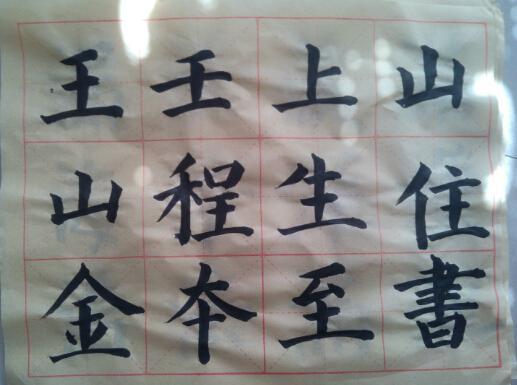 王壬上山
山程生住
金夲至書